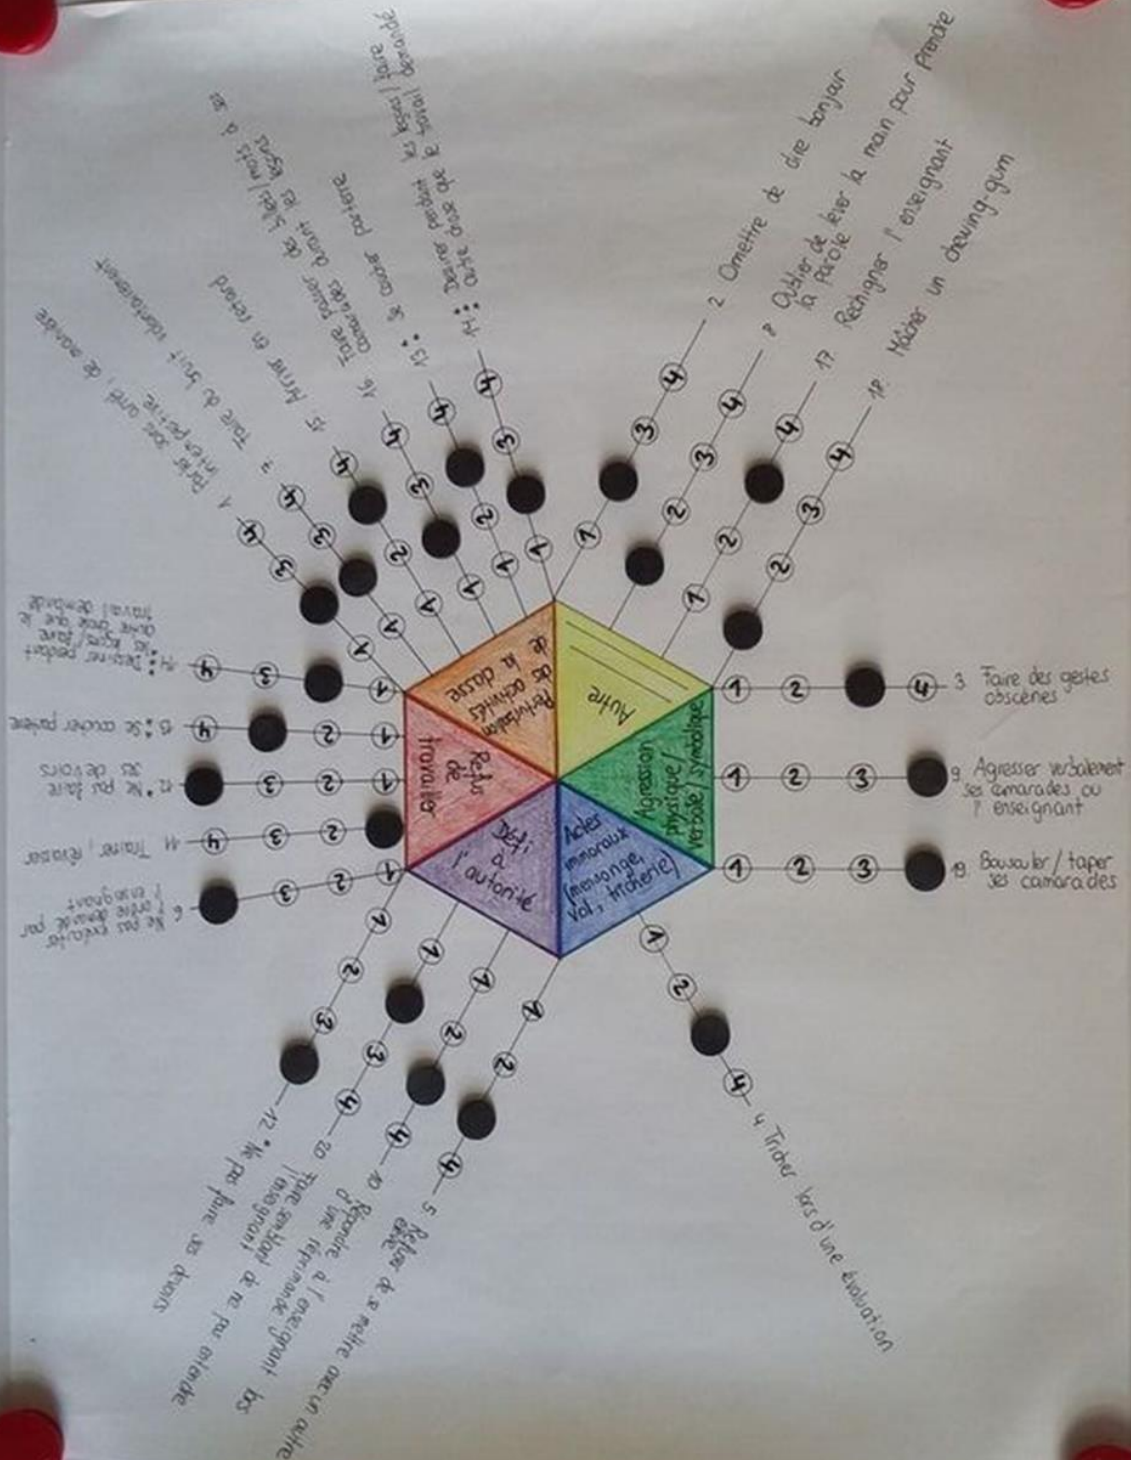 Autre
Agression
physique/
verbale/symbolique
Actes
immoraux
(mensonge,
vol, tricherie)
Défi
à
l'autorité
Refus
de
travailler
Perturbation
des activités
de la classe
1 2 3 4 2 Omettre de dire bonjour
1 2 3 4 8 Oublier de lever la main pour prendre
la parole
1 2 4 17 Rechigner l'enseignant
2 3 4 18. Mâcher un chewing-gum
1 2 4 3. Faire des gestes
obscènes
1 2 3 9. Agresser verbalement
ses camarades ou
l'enseignant
1 2 3 19. Bousculer / taper
ses camarades
1 2 4 4 Tricher lors d'une évaluation
1 2 4 5 Refus de se mettre avec un autre
élève
1 2 4 10 Répondre à l'enseignant lors
d'une réprimande
1 3 4 20 Faire semblant de ne pas entendre
l'enseignant
1 2 3 12 * Ne pas faire ses devoirs
1 2 3 6 Ne pas exécuter
l'ordre demandé par
l'enseignant
2 3 4 11 Trainer, Rêvasser
1 2 3 12 * Ne pas faire
ses devoirs
1 2 4 13 Se coucher par terre
1 3 4 14 Dessiner pendant
les leçons / faire
autre chose que le
travail demandé
1 3 4 1 Parler sans arrêt, de manière
intempestive
1 3 4 7 Faire du bruit volontairement
1 2 4 15 Arriver en retard
1 3 4 16 Faire passer des billets/mots à ses
camarades durant les leçons
1 2 4 13 Se coucher par terre
1 3 4 14 Dessiner pendant les leçons / faire
autre chose que le travail demandé